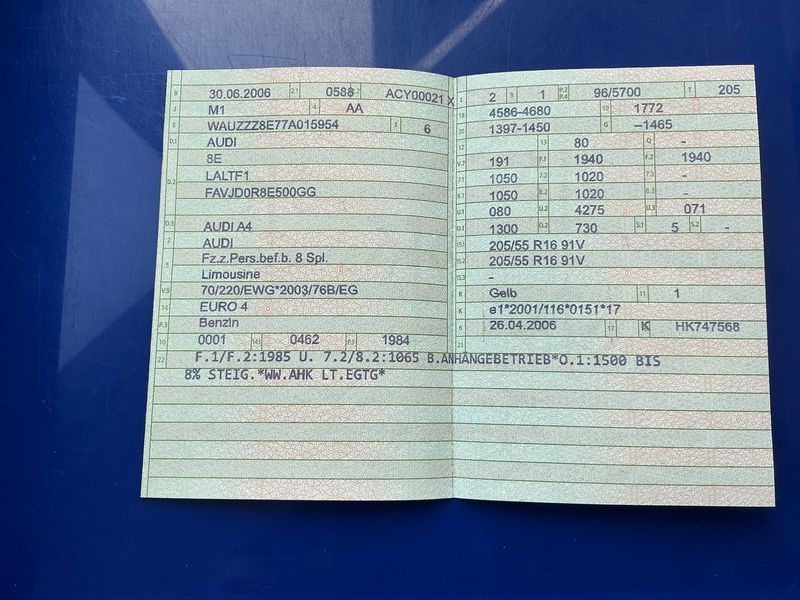 B 30.06.2006 2.1 0588 2.2 ACY00021 X
J M1 4 AA
E WAUZZZ8E77A015954 3 6
D.1 AUDI
8E
D.2 LALTF1
FAVJD0R8E500GG
D.3 AUDI A4
2 AUDI
5 Fz.z.Pers.bef.b. 8 Spl.
Limousine
V.9 70/220/EWG*2003/76B/EG
14 EURO 4
P.3 Benzin
10 0001 14.1 0462 P.1 1984
L 2 9 1 P.2 P.4 96/5700 T 205
18 4586-4680 19 1772
20 1397-1450 G –1465
12 13 80 Q -
V.7 191 F.1 1940 F.2 1940
7.1 1050 7.2 1020 7.3 -
8.1 1050 8.2 1020 8.3 -
U.1 080 U.2 4275 U.3 071
O.1 1300 O.2 730 S.1 5 S.2 -
15.1 205/55 R16 91V
15.2 205/55 R16 91V
15.3 -
R Gelb 11 1
K e1*2001/116*0151*17
6 26.04.2006 17 K HK747568
21
22 F.1/F.2:1985 U. 7.2/8.2:1065 B.ANHÄNGEBETRIEB*O.1:1500 BIS
8% STEIG.*WW.AHK LT.EGTG*